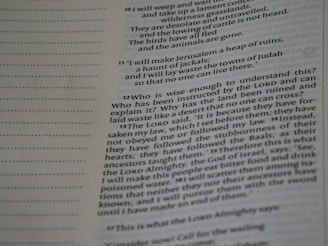 10 I will weep and wail for
and take up a lament conce
wilderness grasslands.
They are desolate and untravelled,
and the lowing of cattle is not heard.
The birds have all fled
and the animals are gone.
11 'I will make Jerusalem a heap of ruins,
a haunt of jackals;
and I will lay waste the towns of Judah
so that no one can live there.'
12 Who is wise enough to understand this?
Who has been instructed by the LORD and can
explain it? Why has the land been ruined and
laid waste like a desert that no one can cross?
13 The LORD said, 'It is because they have for-
saken my law, which I set before them; they have
not obeyed me or followed my law. 14 Instead,
they have followed the stubbornness of their
hearts; they have followed the Baals, as their
ancestors taught them.' 15 Therefore this is what
the LORD Almighty, the God of Israel, says: 'See,
I will make this people eat bitter food and drink
poisoned water. 16 I will scatter them among na-
tions that neither they nor their ancestors have
known, and I will pursue them with the sword
until I have made an end of them.'
17 This is what the LORD Almighty says:
'Consider now! Call for the wailing